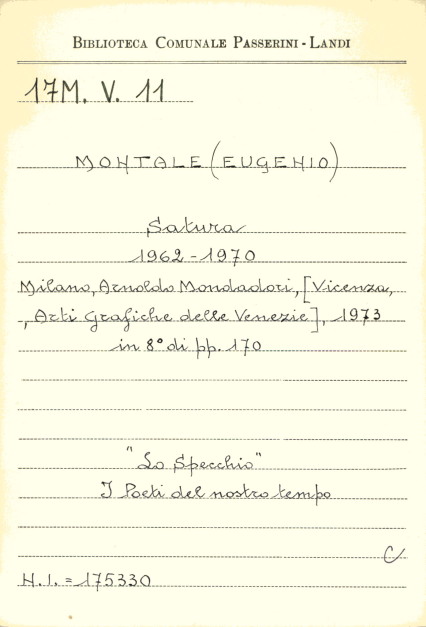 BIBLIOTECA COMUNALE PASSERINI - LANDI
17M. V. 11
MONTALE (EUGENIO)
Satura
1962-1970
Milano, Arnoldo Mondadori, [Vicenza,
, Arti Grafiche delle Venezie], 1973
in 8° di pp. 170
"Lo Specchio"
I Poeti del nostro tempo
C
N.I. = 175330